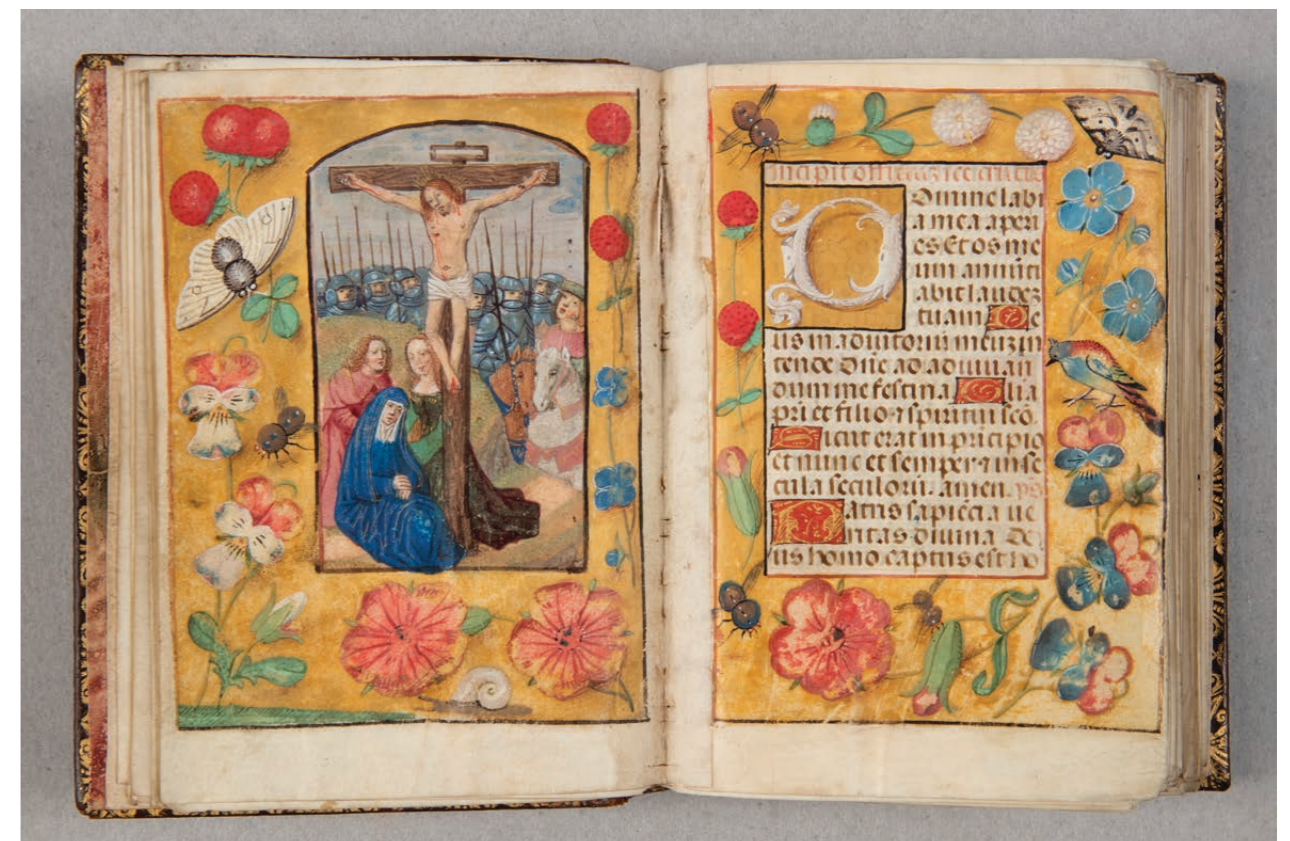 Incipit officiuz scē crucis
Domine labi
a mea aperi
es Et os me
um annūci
abit laudez
tuam De
us in adiutoriū meuz in
tende Dñe ad adiuuan
dum me festina Glia
pri et filio ⁊ spiritui scō.
Sicut erat in prīcipio
et nunc et semper ⁊ in se
cula seculorū. amen. ps
Patris sapiēcia ue
ritas diuina De
us homo captus est ho